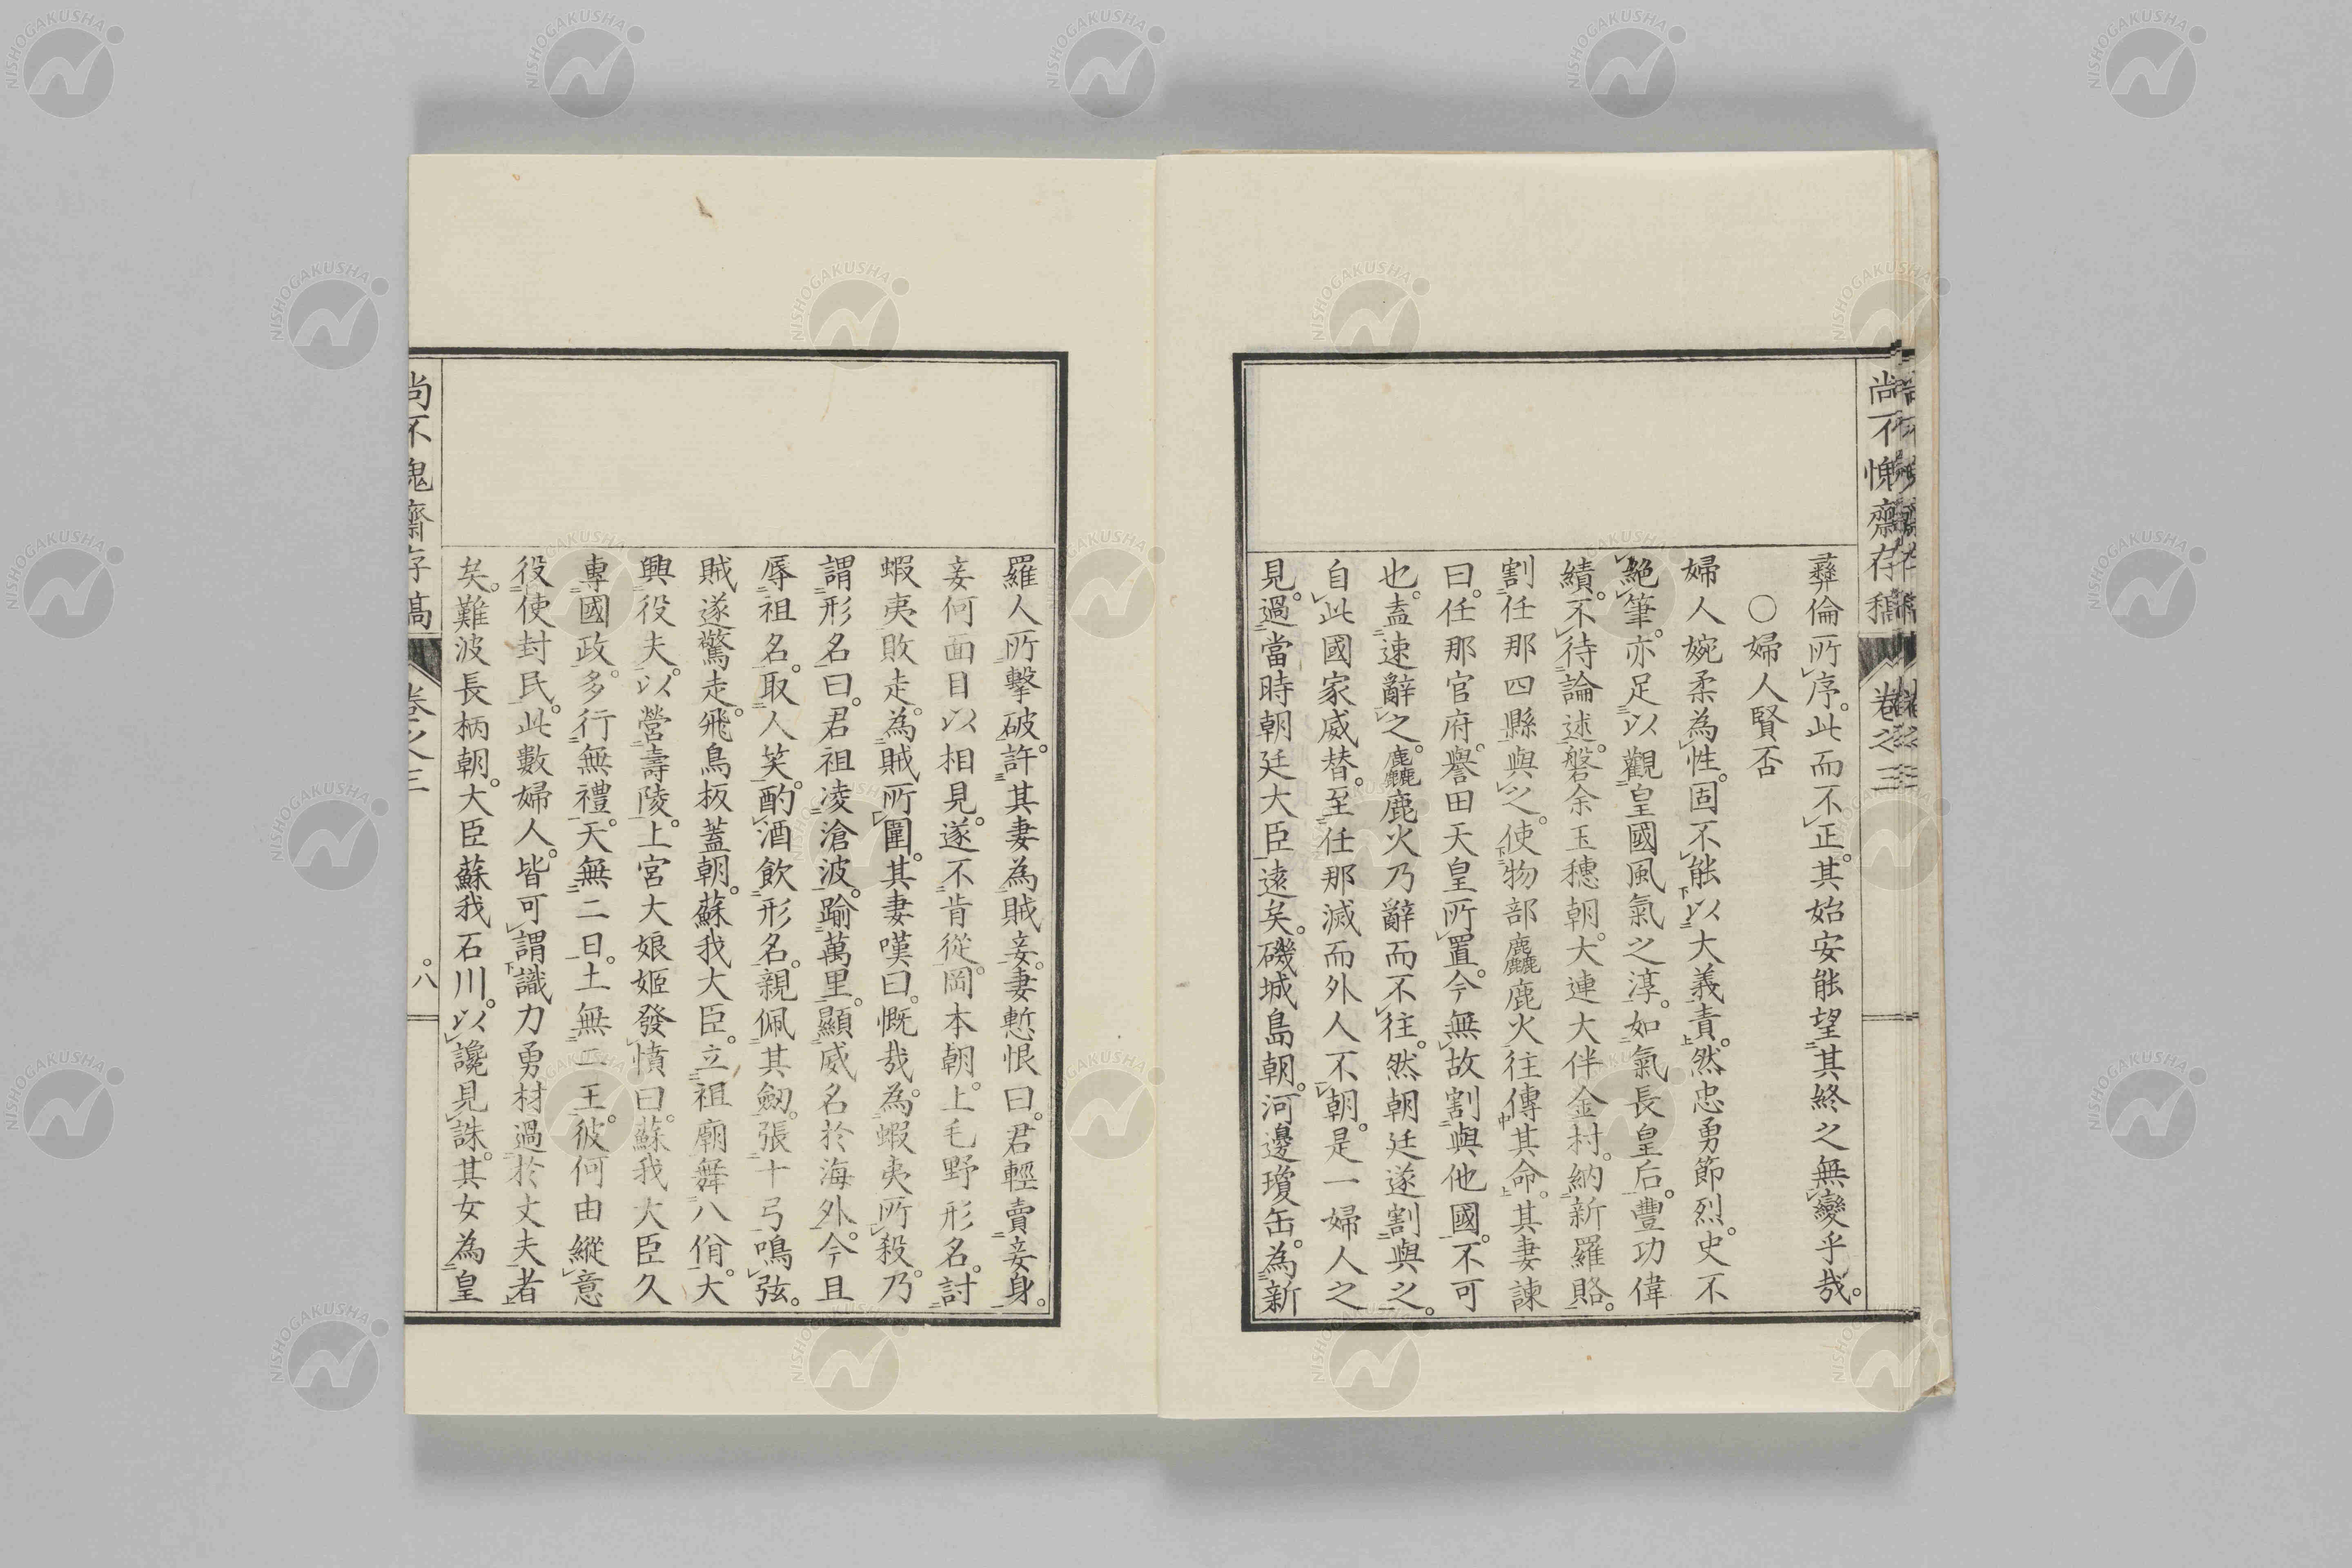 尚不愧齋存稿 卷之三
彝倫所序。此而不正。其始安能望其終之無變乎哉。
○婦人賢否
婦人婉柔為性。固不能以大義責。然忠勇節烈。史不
絕筆。亦足以觀皇國風氣之淳。如氣長皇后。豐功偉
績。不待論述。磐余玉穗朝。大連大伴金村。納新羅賂。
割任那四縣與之。使物部麤鹿火往傳其命。其妻諫
曰。任那官府。譽田天皇所置。今無故割與他國。不可
也。盍速辭之。麤鹿火乃辭而不往。然朝廷遂割與之。
自此國家威替。至任那滅而外人不朝。是一婦人之
見。過當時朝廷大臣遠矣。磯城島朝。河邊瓊缶。為新
羅人所擊破。許其妻為賊妾。妻慙恨曰。君輕賣妾身。
妾何面目以相見。遂不肯從。岡本朝。上毛野形名。討
蝦夷敗走。為賊所圍。其妻嘆曰。慨哉。為蝦夷所殺。乃
謂形名曰。君祖凌滄波。踰萬里。顯威名於海外。今且
辱祖名。取人笑。酌酒飲形名。親佩其劔。張十弓鳴弦。
賊遂驚走。飛鳥板蓋朝。蘇我大臣。立祖廟舞八佾。大
興役夫。以營壽陵。上宮大娘姬發憤曰。蘇我大臣久
專國政。多行無禮。天無二日。土無二王。彼何由縱意
役使封民。此數婦人。皆可謂識力勇材過於丈夫者
矣。難波長柄朝。大臣蘇我石川。以讒見誅。其女為皇
尚不愧齋存稿 卷之三 八